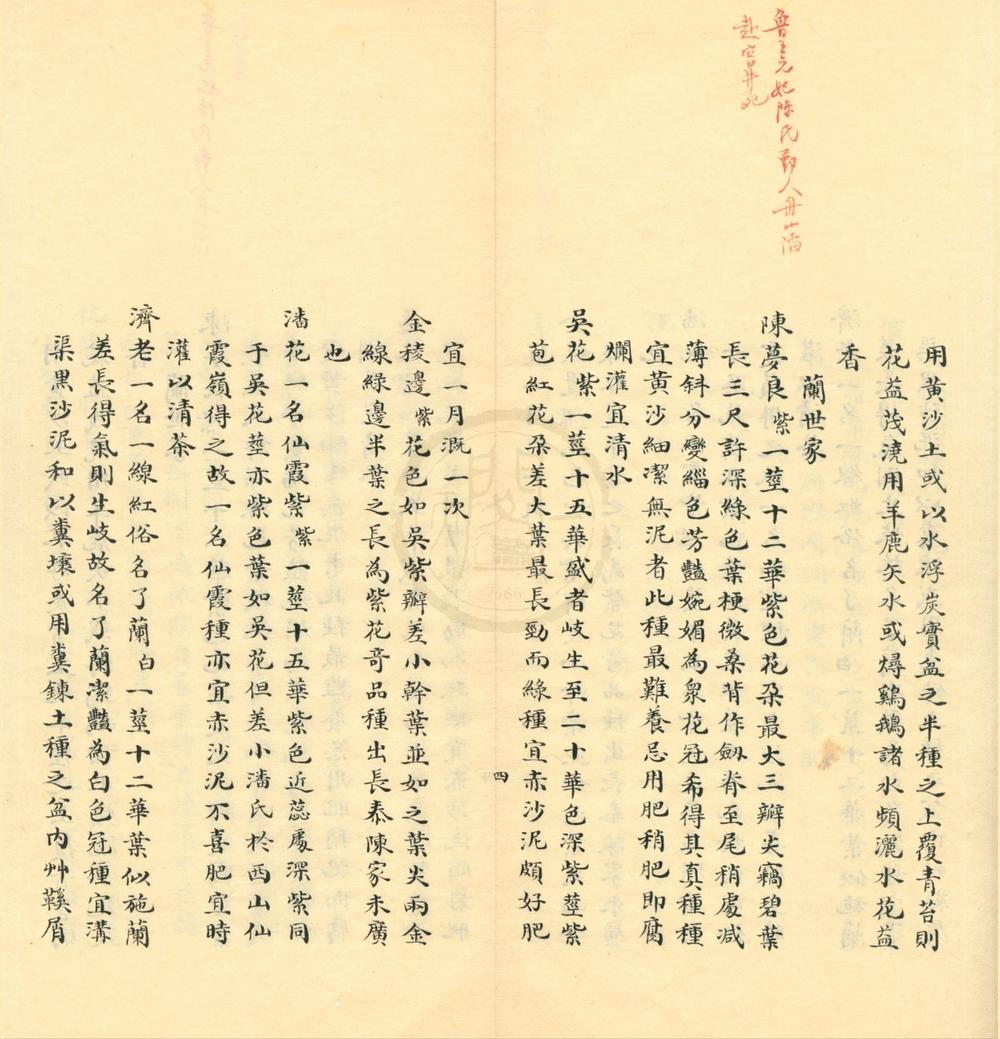 魯王元妃陳氏鄞人舟山潘
赴宮井死
用黃沙土或以水浮炭實盆之半種之上覆青苔則
花益茂澆用羊鹿矢水或燖鷄鵝諸水頻灑水花益
香
蘭世家
陳夢良紫一莖十二華紫色花朶最大三瓣尖竊碧葉
長三尺許深綠色葉梗微桑背作劔脊至尾稍處減
薄斜分變緇色芳豔婉媚為衆花冠希得其真種種
宜黃沙細潔無泥者此種最難養忌用肥稍肥即腐
爛灌宜清水
吳花紫一莖十五華盛者岐生至二十華色深紫莖紫
苞紅花朶差大葉最長勁而綠種宜赤沙泥頗好肥
四
宜一月溉一次
金稜邊紫花色如吳紫瓣差小幹葉並如之葉尖兩金
線綠邊半葉之長為紫花奇品種出長泰陳家未廣
也
潘花一名仙霞紫紫一莖十五華紫色近蕊處深紫同
于吳花莖亦紫色葉如吳花但差小潘氏於西山仙
霞嶺得之故一名仙霞種亦宜赤沙泥不喜肥宜時
灌以清茶
濟老一名一線紅俗名了蘭白一莖十二華葉似施蘭
差長得氣則生岐故名了蘭潔豔為白色冠種宜溝
渠黑沙泥和以糞壤或用糞鍊土種之盆內艸鞵屑